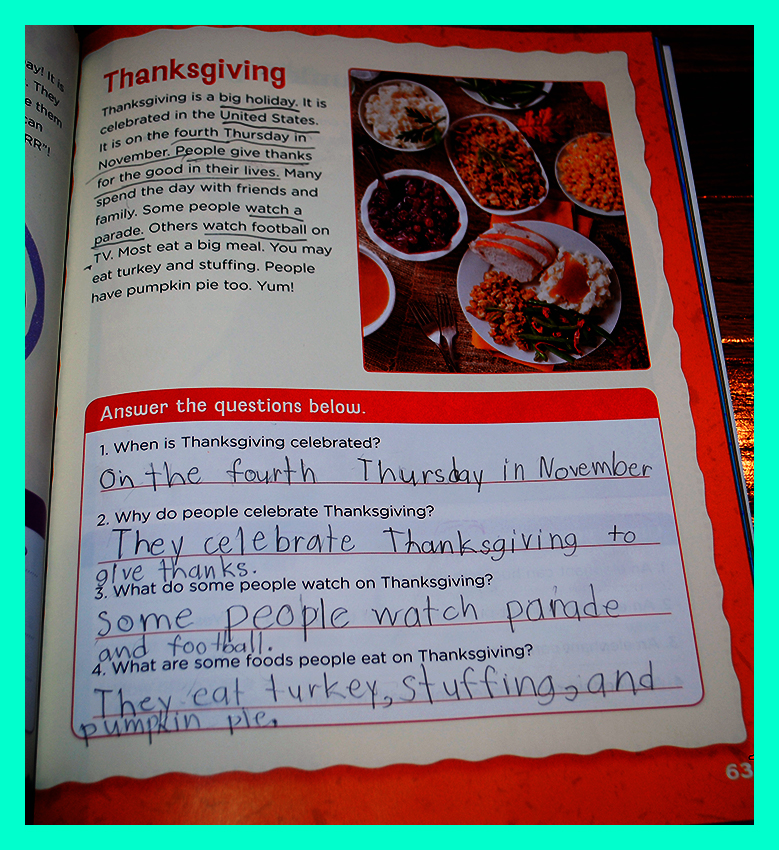 ay! It is
. They
e them
can
RR"!
Thanksgiving
Thanksgiving is a big holiday. It is
celebrated in the United States.
It is on the fourth Thursday in
November. People give thanks
for the good in their lives. Many
spend the day with friends and
family. Some people watch a
parade. Others watch football on
TV. Most eat a big meal. You may
eat turkey and stuffing. People
have pumpkin pie too. Yum!
Answer the questions below.
1. When is Thanksgiving celebrated?
On the fourth Thursday in November
2. Why do people celebrate Thanksgiving?
They celebrate Thanksgiving to
give thanks.
3. What do some people watch on Thanksgiving?
Some people watch parade
and football.
4. What are some foods people eat on Thanksgiving?
They eat turkey, stuffing, and
pumpkin pie.
63